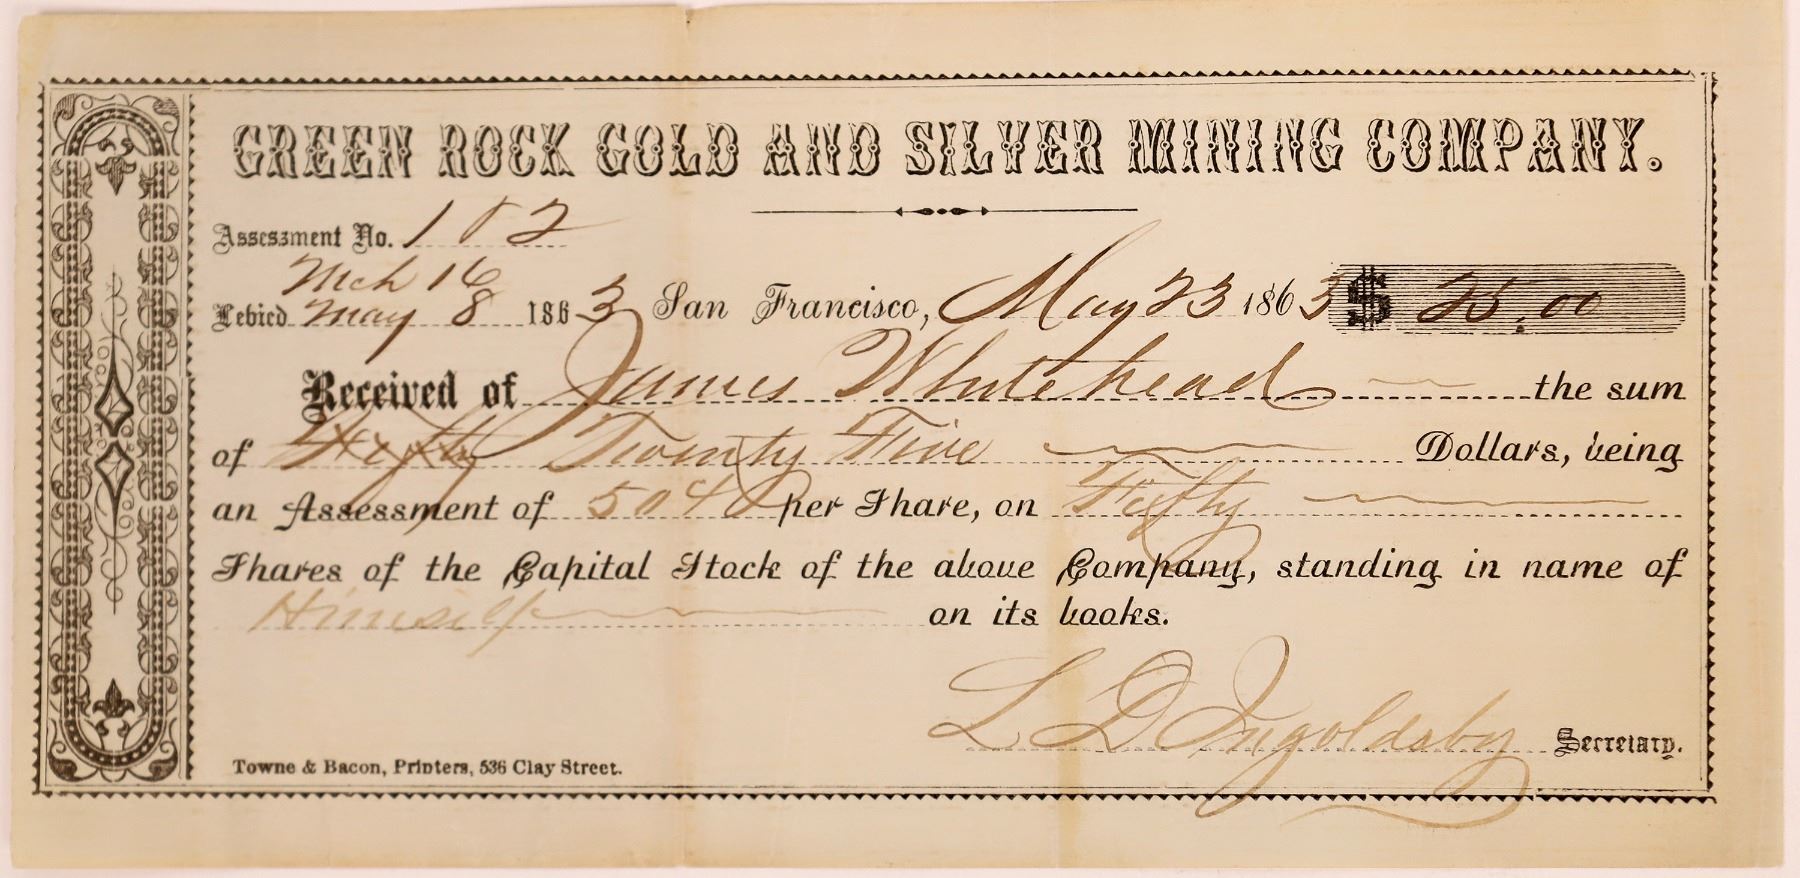 GREEN ROCK GOLD AND SILVER MINING COMPANY.
Assessment No. 1 & 2
Mch 16
Levied May 8 1863 San Francisco, May 23 1863 $ 25.00
Received of James Whitehead the sum
of Fifty Twenty Five Dollars, being
an Assessment of 50 ¢ per Share, on Fifty
Shares of the Capital Stock of the above Company, standing in name of
Himself on its books.
L D Ingoldsby Secretary.
Towne & Bacon, Printers, 536 Clay Street.